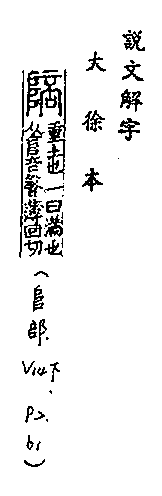 說文解字
大徐本
陪
重土也一曰滿也
从𨸏咅聲薄回切
(𨸏部、V14下、P2、b1)